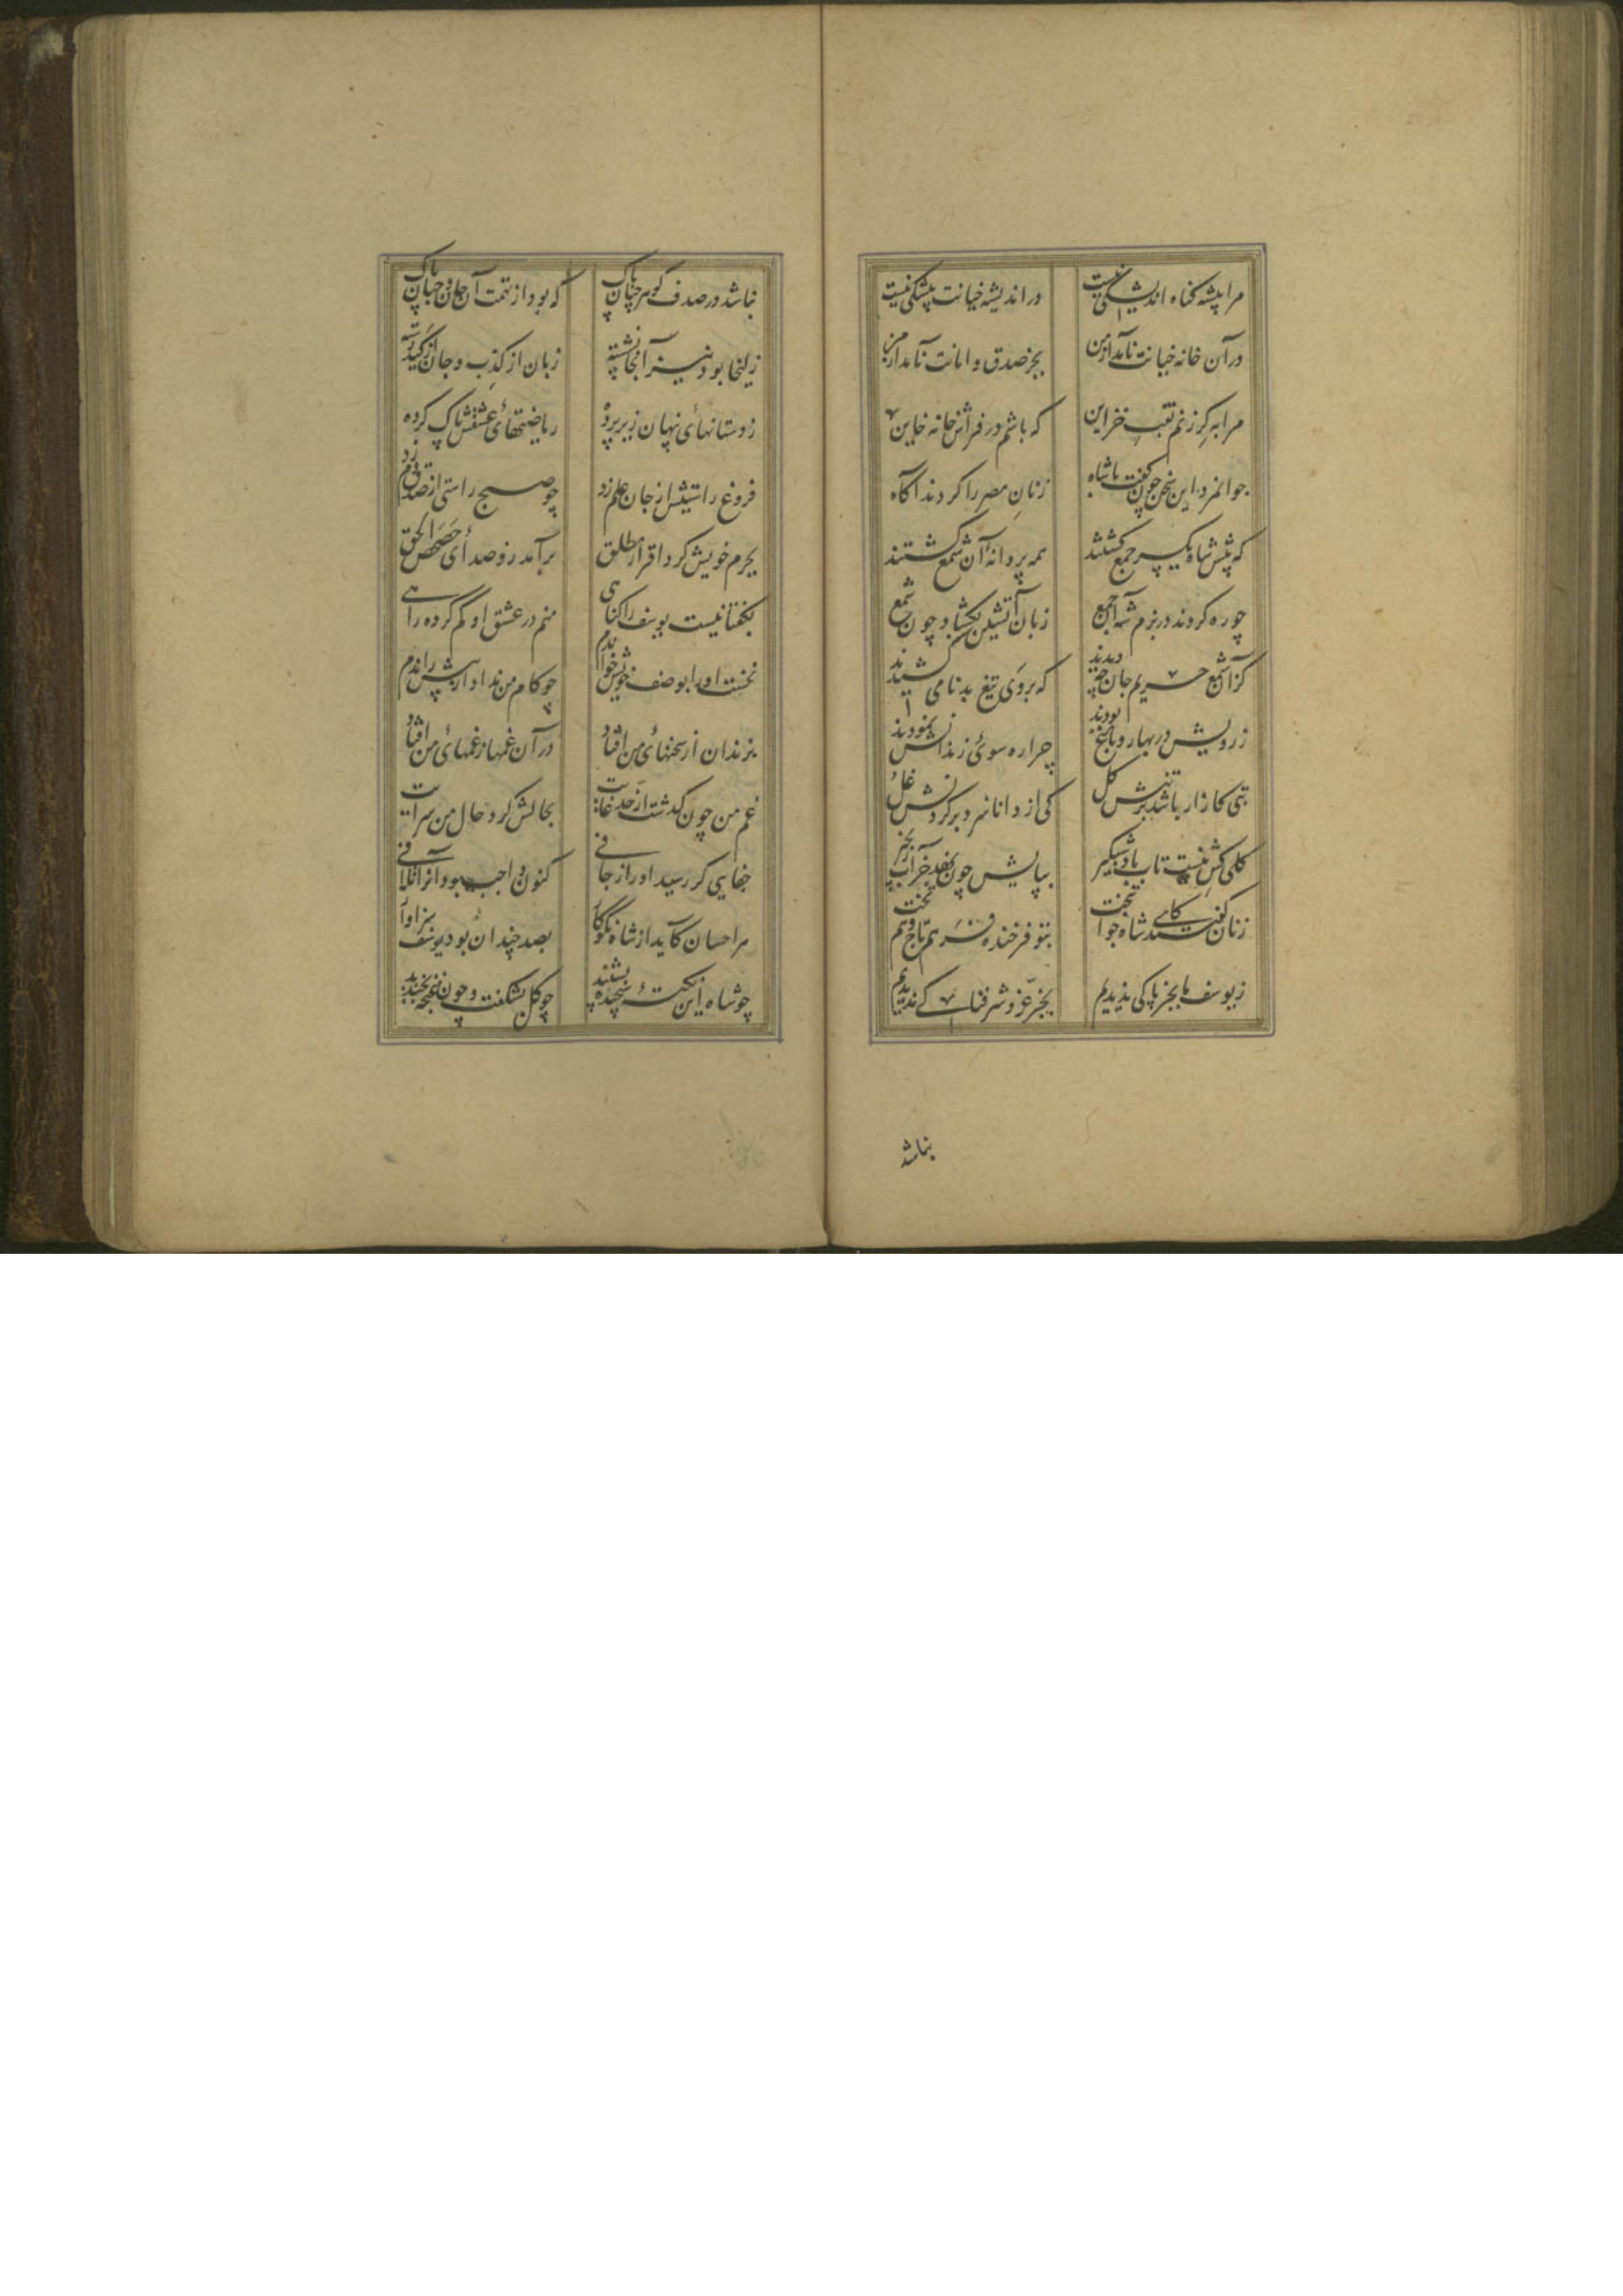 مرا پیشه گناه اندیشگی نیست
در اندیشه خیانت پیشگی نیست
در آن خانه خیانت نامد از من
بجز صدق و امانت نامد از من
مرا به گر زنم نقب خزاین
که باشم در فراش خانه خاین
جوانمرد این سخن چون گفت با شاه
زنان مصر را کردند آگاه
که پیش شاه یکسر جمع گشتند
همه پروانهٔ آن شمع گشتند
چو ره کردند در بزم شه آن جمع
زبان آتشین بگشاد چون شمع
کزان شمع حریم جان چه دیدید
که بر وی تیغ بدنامی کشیدید
ز رویش در بهار و باغ بودید
چرا ره سوی زندانش نمودید
بتی کازار باشد بر تنش گل
کی از دانا سزد بر گردنش غل
گلی کش نیست تاب باد شبگیر
بپایش چون نهد جز آب زنجیر
زنان گفتند کای شاه جوانبخت
بتو فرخنده فر هم تاج و هم تخت
ز یوسف ما بجز پاکی ندیدیم
بجز عز و شرفناکی ندیدیم
نباشد
نباشد در صدف گوهر چنان پاک
که بود از تهمت آن جان جهان پاک
زلیخا بود نیز آنجا نشسته
زبان از کذب و جان از کید رسته
ز دستانهای پنهان زیر پرده
ریاضتهای عشقش پاک کرده
فروغ راستیش از جان علم زد
چو صبح راستی از صدق دم زد
بجرم خویش کرد اقرار مطلق
برآمد زو صدای حصحص الحق
بگفتا نیست یوسف را گناهی
منم در عشق او گم کرده راهی
نخست او را بوصف خویش خواندم
چو کام من نداد از پیش راندم
بزندان از سخنهای من افتاد
در آن غمها ز غمهای من افتاد
غم من چون گذشت از حد و غایت
بحالش کرد حال من سرایت
جفایی گر رسید او را ز جافی
کنون واجب بود آنرا تلافی
هر احسان کاید از شاه نکوکار
بصد چندان بود یوسف سزاوار
چو شاه این نکتهٔ سنجیده بشنید
چو گل بشکفت و چون غنچه بخندید